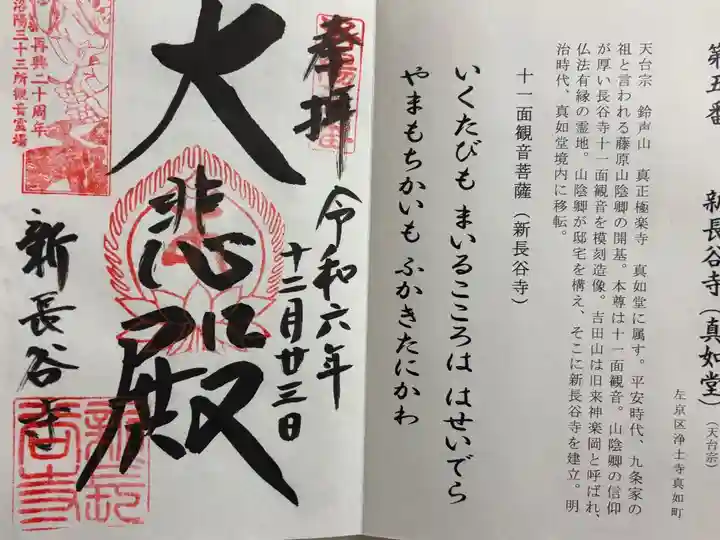 第五番 新長谷寺(真如堂)(天台宗)
左京区浄土寺真如町
天台宗 鈴声山 真正極楽寺 真如堂に属す。平安時代、九条家の
祖と言われる藤原山陰卿の開基。本尊は十一面観音。山陰卿の信仰
が厚い長谷寺十一面観音を模刻造像。吉田山は旧来神楽岡と呼ばれ、
仏法有縁の霊地。山陰卿が邸宅を構え、そこに新長谷寺を建立。明
治時代、真如堂境内に移転。
十一面観音菩薩(新長谷寺)
いくたびも まいるこころは はせいでら
やまもちかいも ふかきたにかわ
奉拝
令和六年
十二月廿三日
大悲殿
新長谷寺
再興二十周年
洛陽三十三所観音霊場
新長谷寺